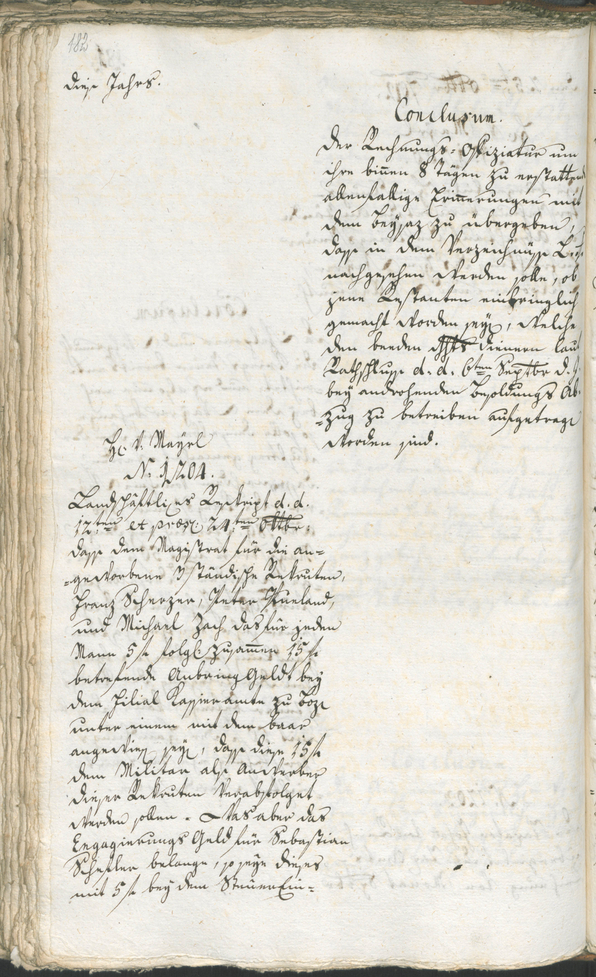 182
diese Jahrs.
Conclusum.
Der Rechnungs-Offiziatur um
ihre binnen 8 Tägen zu erstattende
allenfällige Erinnerungen mit
dem Beysaz zu übergeben,
dass in dem Verzeichnüsse
nachgesehen werden solle, ob
jene Restanten einbringlich
gemacht worden seye, welche
den beeden dienern laut
Rathschlusse d. d. 6ten Septbr d. J.
bey androhenden Besoldungs Ab-
zug zu betreiben aufgetragen
worden sind.
H: v. Mayrl
N. 1204.
Landschäftliches Rescript d. d.
12ten et præs: 24ten Octbr.
dass dem Magistrat für die an-
geworbene 3 ständische Rekruten,
Franz Scherzer, Peter
und Michael Zach das für jeden
Mann 5 f folgl: zusammen 15 f
betrefende Anbring Geldt bey
dem Filial Kassieramte zu Boze
unter einem mit dem baar
angewiesen seye, dass diese 15 f
dem Militar als Anwerber
dieser Rekruten verabfolget
werden sollen. Was aber das
Engagierungs Geld für Sebastian
belange, so seye dieses
mit 5 f bey dem Steüer Ein-